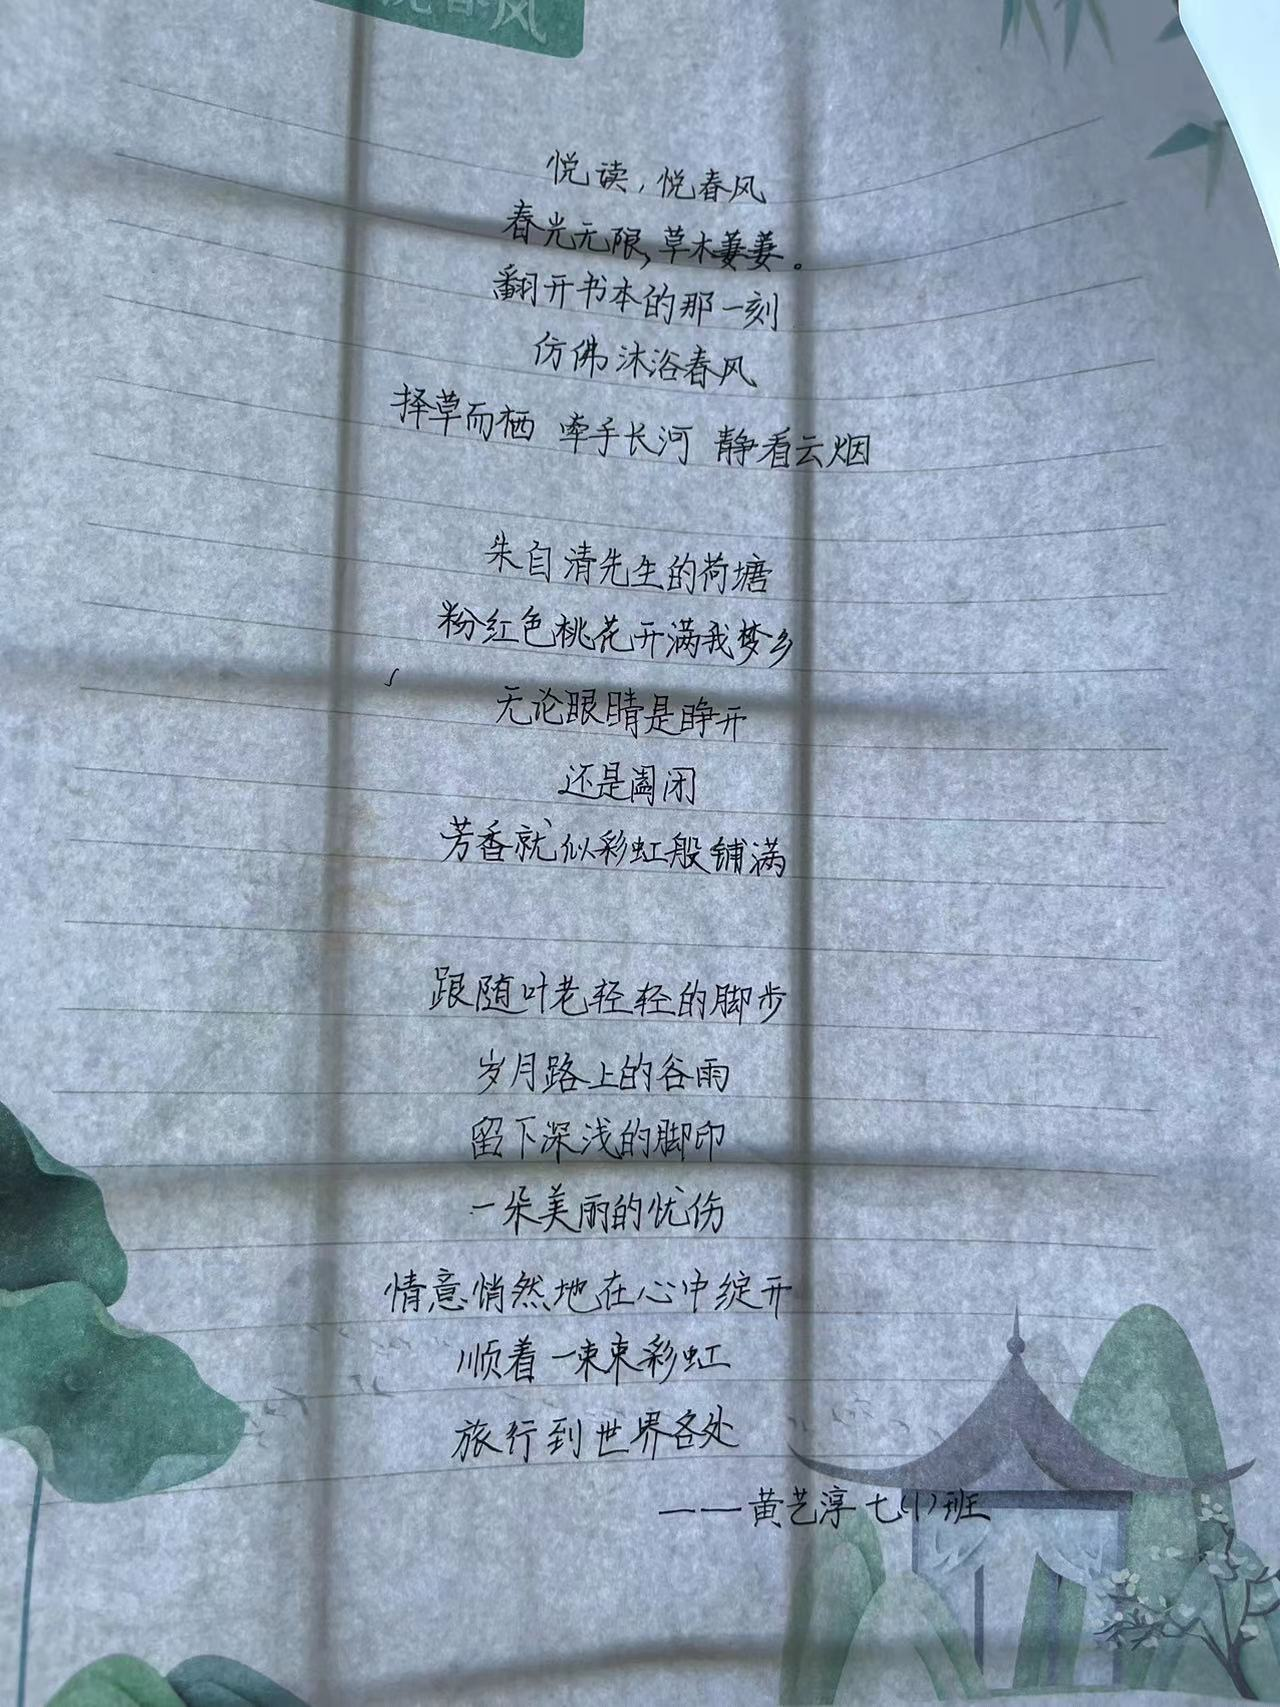 悦春风
悦读，悦春风
春光无限，草木萋萋。
翻开书本的那一刻
仿佛沐浴春风
择草而栖 牵手长河 静看云烟
朱自清先生的荷塘
粉红色桃花开满我梦乡
无论眼睛是睁开
还是阖闭
芳香就似彩虹般铺满
跟随叶老轻轻的脚步
岁月路上的谷雨
留下深浅的脚印
一朵美丽的忧伤
情意悄然地在心中绽开
顺着一束束彩虹
旅行到世界各处
——黄艺淳 七(1)班